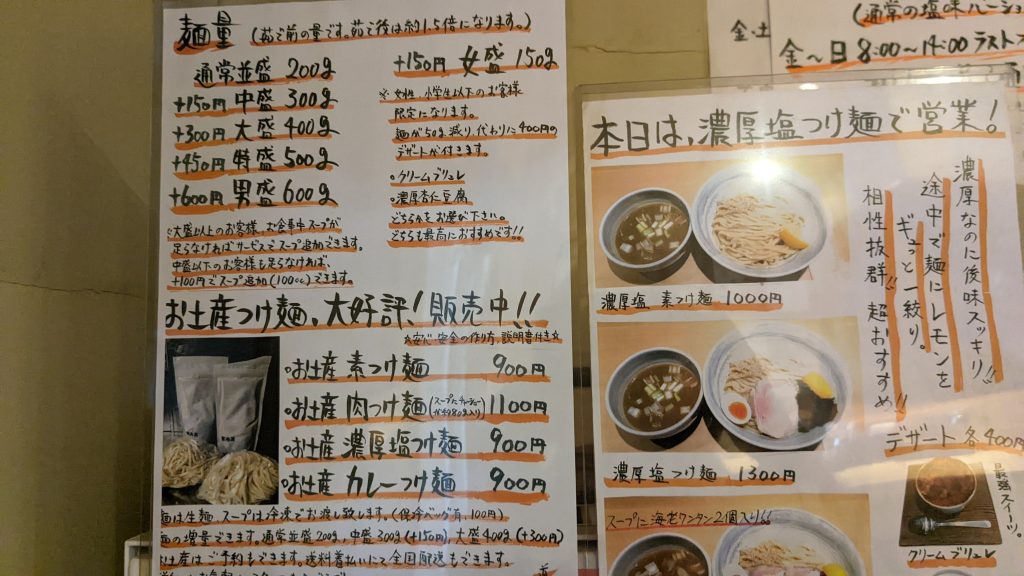 麺量 (茹で前の量です。茹で後は約1.5倍になります。)
通常並盛 200g
+150円 中盛 300g
+300円 大盛 400g
+450円 特盛 500g
+600円 男盛 600g
※大盛以上のお客様、お食事中スープが
足らなければサービスでスープ追加できます。
中盛以下のお客様も足らなければ
+100円でスープ追加(100cc)できます。
+150円 女盛 150g
※女性、小学生以下のお客様
限定になります。
麺が50g減り、代わりに400円の
デザートが付きます。
○クリームブリュレ
○濃厚杏仁豆腐
どちらかをお選び下さい。
どちらも最高におすすめです!!
お土産つけ麺、大好評!販売中!!
お安心安全の作り方、説明書付き☆
○お土産 素つけ麺 900円
○お土産 肉つけ麺(スープにチャーシュー約80g入り) 1100円
○お土産 濃厚塩つけ麺 900円
○お土産 カレーつけ麺 900円
麺は生麺、スープは冷凍でお渡し致します。(保冷バッグ有、100円)
麺の増量できます。通常並盛200g、中盛300g(+150円)、大盛400g(+300円)
お土産はご予約もできます。送料着払いにて全国配送もできます。
(通常の塩味バージョ
金・土
金～日 8:00～14:00 ラスト
本日は、濃厚塩つけ麺で営業!
濃厚なのに後味スッキリ!!
途中で麺にレモンを
ギュっと一絞り。
相性抜群!! 超おすすめ!!
濃厚塩 素つけ麺 1000円
濃厚塩つけ麺 1300円
スープに海老ワンタン2個入り!!
デザート 各400円
最強スイーツ。
クリームブリュレ